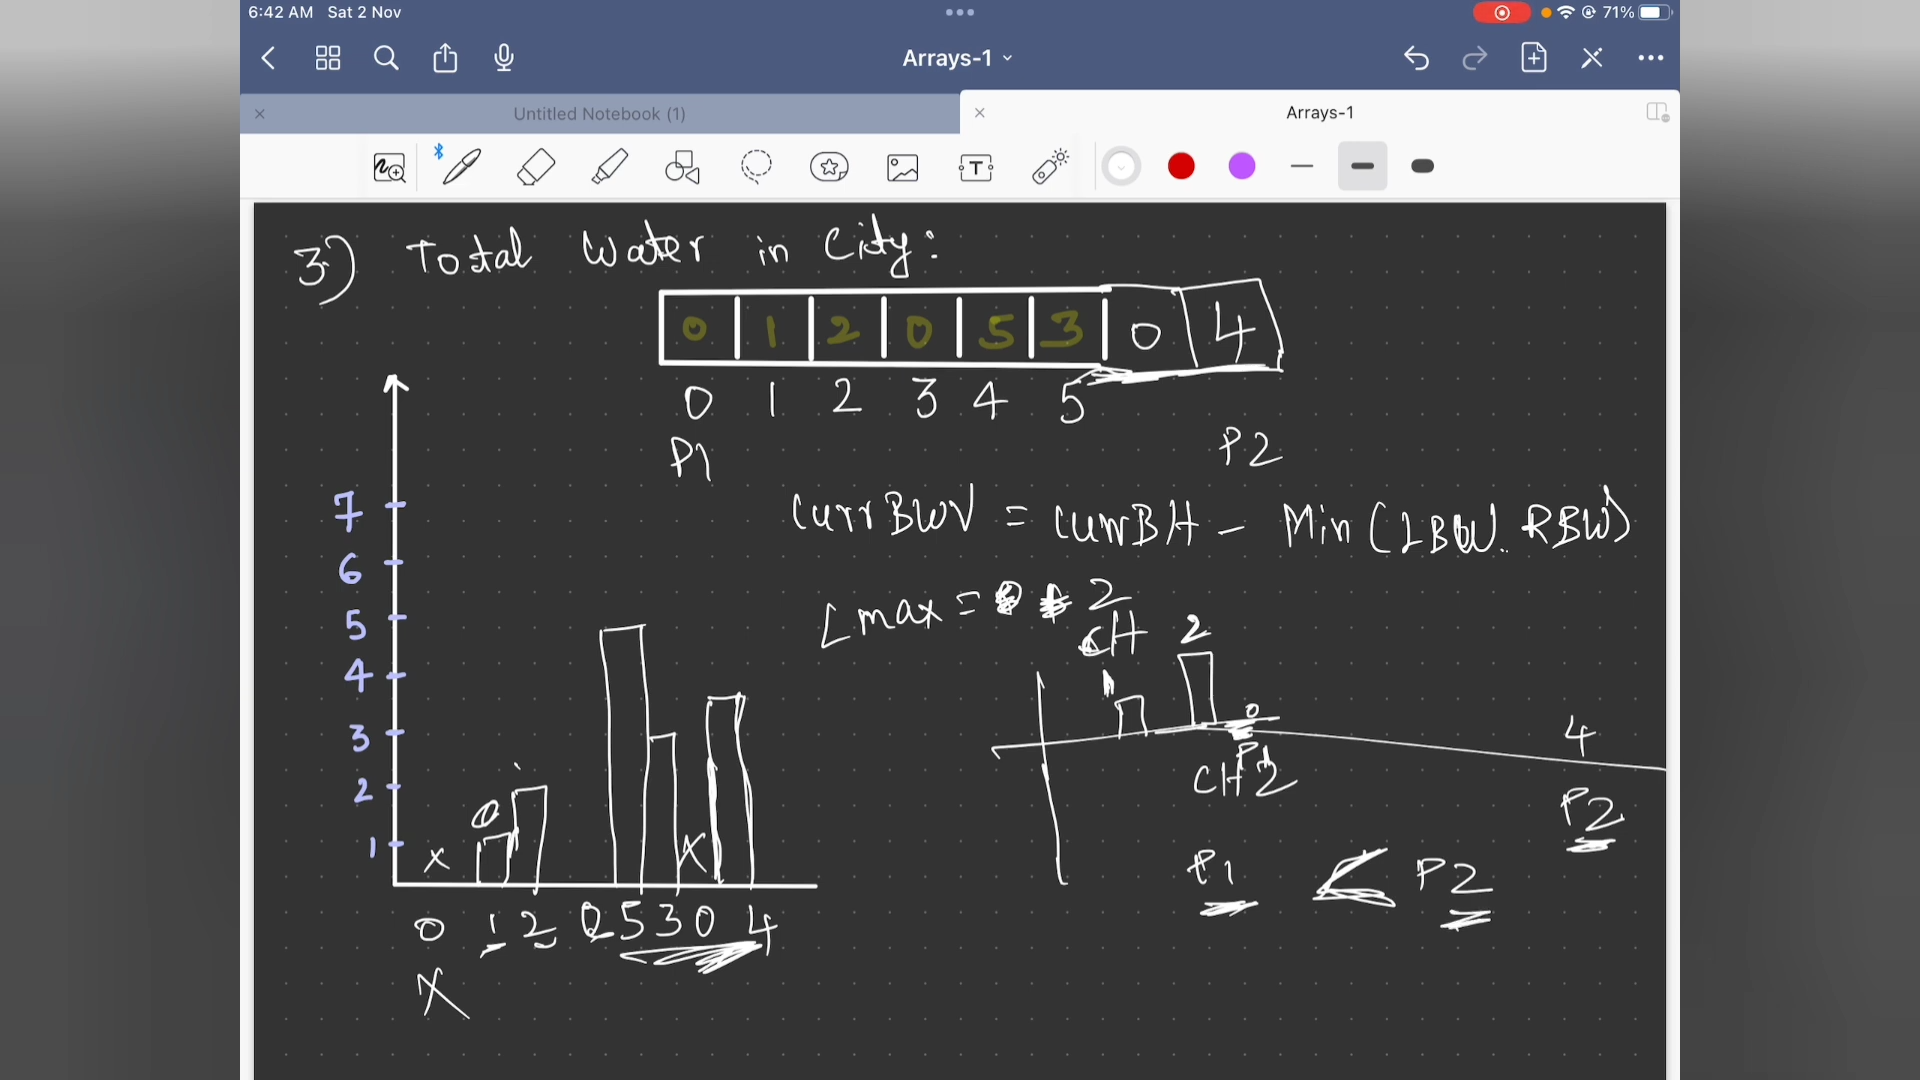 6:42 AM Sat 2 Nov
71%
Arrays-1
Untitled Notebook (1)
Arrays-1
3) Total Water in City:
0 1 2 0 5 3 0 4
0 1 2 3 4 5
P1 P2
7
CurrBWV = CurrBH - Min (LBW. RBW)
6
Lmax = 2
5
CH 2
4
1 0
3
4
P
2
CH2
P2
0
1
x
X
P1 < P2
0 1 2 0 5 3 0 4
X